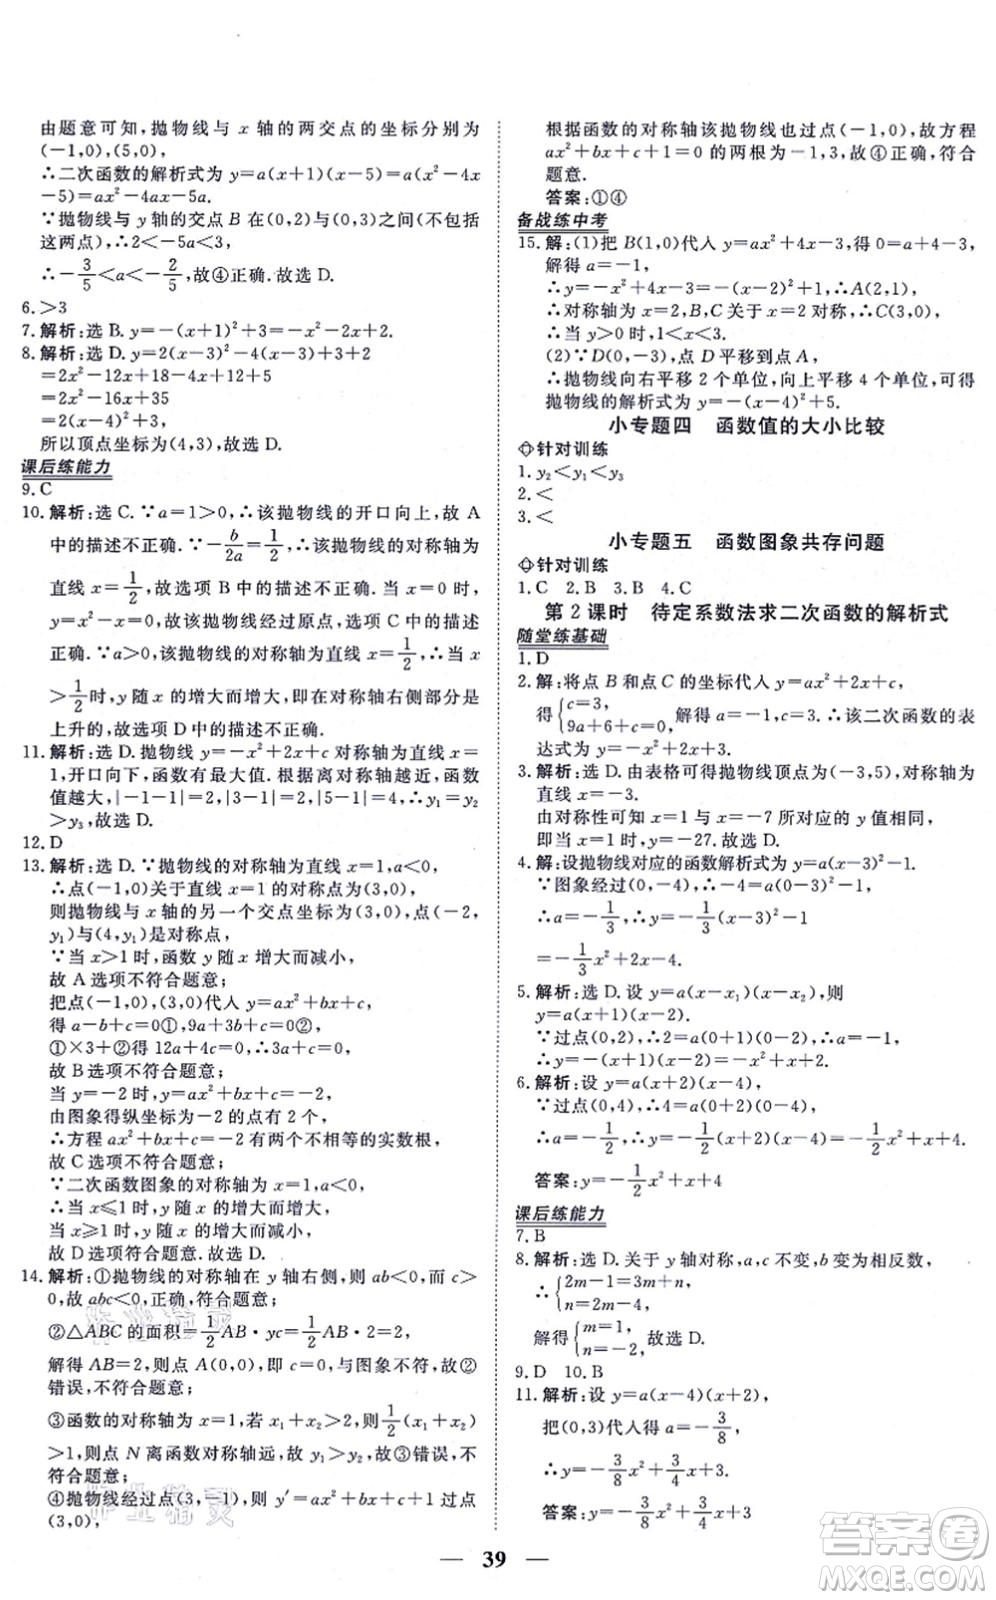 由题意可知,抛物线与 x 轴的两交点的坐标分别为
(-1,0),(5,0),
∴二次函数的解析式为 y=a(x+1)(x-5)=a(x²-4x
-5)=ax²-4ax-5a.
∵抛物线与 y 轴的交点 B 在(0,2)与(0,3)之间(不包括
这两点),∴2<-5a<3,
∴-3/5<a<-2/5,故④正确.故选 D.
6.>3
7.解析:选 B. y=-(x+1)²+3=-x²-2x+2.
8.解析:选 D. y=2(x-3)²-4(x-3)+3+2
=2x²-12x+18-4x+12+3+2
=2x²-16x+35
=2(x-4)²+3,
所以顶点坐标为(4,3),故选 D.
课后练能力
9.C
10.解析:选 C.∵a=1>0,∴该抛物线的开口向上,故 A
中的描述不正确.∵-b/2a=1/2,∴该抛物线的对称轴为
直线 x=1/2,故选项 B 中的描述不正确.当 x=0 时,
y=0,∴该抛物线经过原点,故选项 C 中的描述
正确.∵a>0,抛物线的对称轴为直线 x=1/2,∴当 x
>1/2时,y 随 x 的增大而增大,即在对称轴右侧部分是
上升的,故选项 D 中的描述不正确.
11.解析:选 D.抛物线 y=-x²+2x+c 对称轴为直线 x=
1,开口向下,函数有最大值.根据离对称轴越近,函数
值越大,|-1-1|=2,|3-1|=2,|5-1|=4,∴y₁=y₂
>y₃,故选 D.
12.D
13.解析:选 D.∵抛物线的对称轴为直线 x=1,a<0,
∴点(-1,0)关于直线 x=1 的对称点为(3,0),
则抛物线与 x 轴的另一个交点坐标为(3,0),点(-2,
y₁)与(4,y₁)是对称点,
∵当 x>1 时,函数 y 随 x 增大而减小,
故 A 选项不符合题意;
把点(-1,0),(3,0)代入 y=ax²+bx+c
得 a-b+c=0①,9a+3b+c=0②,
①×3+②得 12a+4c=0,∴3a+c=0,
故 B 选项不符合题意;
当 y=-2 时,y=ax²+bx+c=-2,
由图象得纵坐标为-2 的点有 2 个,
∴方程 ax²+bx+c=-2 有两个不相等的实数根,
故 C 选项不符合题意;
∵二次函数图象的对称轴为 x=1,a<0,
∴当 x≤1 时,y 随 x 的增大而增大,
当 x≥1 时,y 随 x 的增大而减小,
故 D 选项符合题意.故选 D.
14.解析:①抛物线的对称轴在 y 轴右侧,则 ab<0,而 c>
0,故 abc<0,正确,符合题意;
②△ABC 的面积=1/2AB·yc=1/2×AB×2=2,
解得 AB=2,则点 A(0,0),即 c=0,与图象不符,故②
错误,不符合题意;
③函数的对称轴为 x=1,若 x₁+x₂>2,则1/2(x₁+x₂)
>1,则点 N 离函数对称轴远,故 y₁>y₂,故③错误,不
符合题意;
④抛物线经过点(3,-1),则 y′=ax²+bx+c+1 过点
(3,0),
根据函数的对称轴该抛物线也过点(-1,0),故方程
ax²+bx+c+1=0 的两根为-1,3,故④正确,符合
题意.
答案:①④
备战练中考
15.解:(1)把 B(1,0)代入 y=ax²+4x-3,得 0=a+4-3,
解得 a=-1,
∴y=-x²+4x-3=-(x-2)²+1,∴A(2,1),
∵对称轴为 x=2,B,C 关于 x=2 对称,∴C(3,0),
∴当 y>0 时,1<x<3.
(2)∵D(0,-3),点 D 平移到点 A,
∴抛物线向右平移 2 个单位,向上平移 4 个单位,可得
抛物线的解析式为 y=-(x-4)²+5.
小专题四 函数值的大小比较
针对训练
1.y₂<y₁<y₃
2.<
3.<
小专题五 函数图象共存问题
针对训练
1.C 2.B 3.B 4.C
第 2 课时 待定系数法求二次函数的解析式
随堂练基础
1.D
2.解:将点 B 和点 C 的坐标代入 y=ax²+2x+c,
得{c=3, 9a+6+c=0,解得 a=-1,c=3.∴该二次函数的表
达式为 y=-x²+2x+3.
3.解析:选 D.由表格可得抛物线顶点为(-3,5),对称轴为
直线 x=-3.
由对称性可知 x=1 和 x=-7 时 y 值相等,
即当 x=1 时,y=-27.故选 D.
4.解:设抛物线对应的函数解析式为 y=a(x-3)²-1.
∵图象经过(0,-4),∴-4=a(0-3)²-1,
∴a=-1/3,∴y=-1/3(x-3)²-1
=-1/3x²+2x-4.
5.解析:选 D.设 y=a(x-x₁)(x-x₂),则
y=a(x+1)(x-2).
∵过点(0,2),∴2=a(0+1)(0-2),∴a=-1,
∴y=-(x+1)(x-2)=-x²+x+2.
6.解析:设 y=a(x+2)(x-4),
∵过点(0,4),∴4=a(0+2)(0-4),
∴a=-1/2,∴y=-1/2(x+2)(x-4)=-1/2x²+x+4.
答案:y=-1/2x²+x+4
课后练能力
7.B
8.解析:选 D.关于 y 轴对称,a,c 不变,b 变为相反数,
∴{2m-1=3m+n, n=2m-4,
解得{m=1, n=-2,故选 D.
9.D 10.B
11.解析:设 y=a(x-4)(x+2),
把(0,3)代入得 a=-3/8,
∴y=-3/8x²+3/4x+3.
答案:y=-3/8x²+3/4x+3
39
作业精灵
作业精灵
答案卷